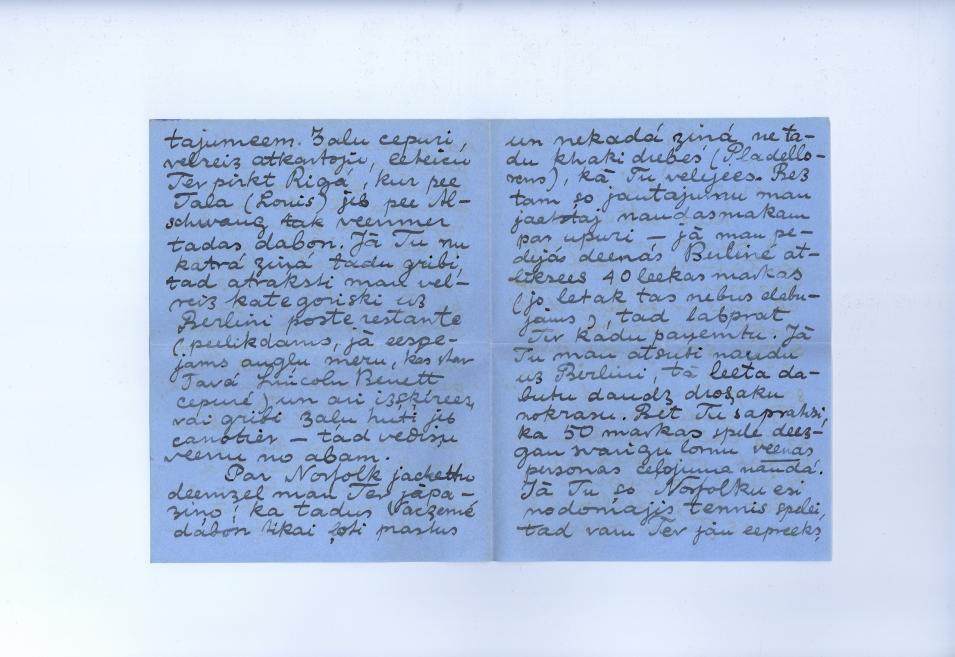 tajumeem. Zalu cepuri,
velreiz atkartoju, eeteicu
Tev pirkt Rigá, kur pee
Tala (Louis) jeb pee Al-
schwang tak veenmer
tadas dabon. Jā Tu nu
katrá ziņá tadu gribi,
tad atraksti man vel-
reiz kategoriski uz
Berlini poste restante
(peelikdams, jā eespe-
jams augļu meru, kas
Tavá Lincoln Benett
cepuré) un ari izšķirees,
vai gribi zalu huti jeb
canotier – tad vedišu
veenu no abam.
Par Norfolk jackettu
deemzel man Tev jāpa-
ziņo, ka tadus Vaczemé
dabon tikai ļoti prastus
un nekadá ziņá ne ta-
du khaki drebes (Pladello-
rens), kā Tu velejees. Bez
tam šo jautajumu man
jaatstaj naudasmakam
par upuri – jā man pe-
dejás deenás Berliné at-
liksees 40 leekas markas
(jo letak tas nebus dabu-
jams), tad labprat
Tev kadu paņemtu. Jā
Tu man atsuti naudu
uz Berlini, tā leeta da-
butu daudz drošaku
nokrasu. Bet Tu saprahsi,
ka 50 markas spele deez-
gan svarigu lomu veenas
personas ceļojuma naudá.
Jā Tu šo Norfolku esi
nodomajis tennis spelei,
tad varu Tev jau eepreekš